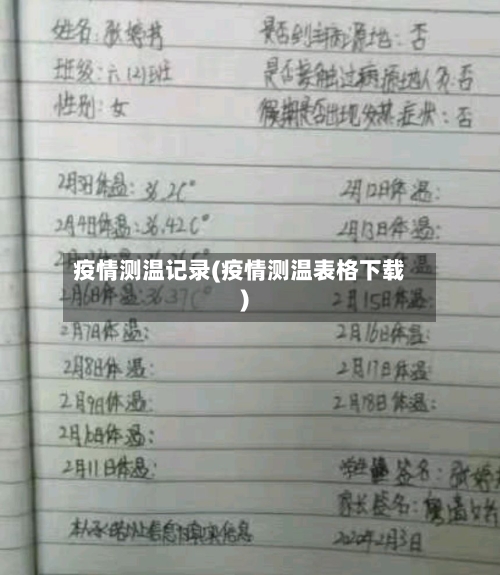 姓名:张婷 是否到过病源地:否
班级:六(2)班 是否接触过病源地人员:否
性别:女 假期是否出现发热症状:否
2月3日体温:36.2C° 2月12日体温:
2月4日体温:36.42C° 2月13日体温:
疫情测温记录(疫情测温表格下载
)
2月6日体温:36.37C° 2月15日体温:
2月7日体温: 2月16日体温:
2月8日体温: 2月17日体温:
2月9日体温: 2月18日体温:
2月10日体温:
2月11日体温: 学生签名:张婷
家长签名:
本人承诺以上信息为真实信息 2020年2月3日